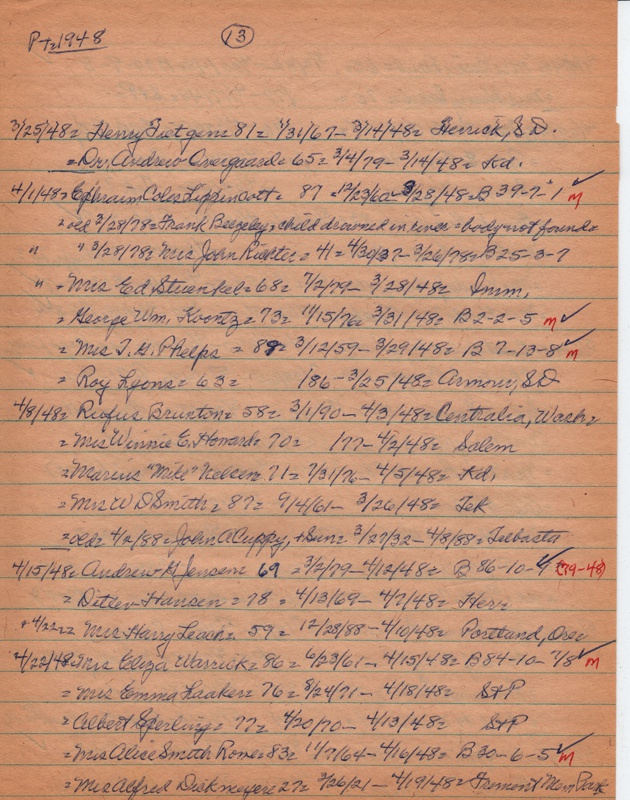 Pt 1948 (13)
3/25/48= Henry Tietgen= 81= 1/31/67- 3/14/48= Herrick, S.D.
= Dr. Andrew Overgaard= 65= 3/4/79- 3/14/48= Kd.
4/1/48= Ephraim Coles Lippincott= 87 =12/23/60- 3/28/48= B 39-7-1 ✓ m
= old 3/28/78= Frank Beezeley, child drowned in river= body not found=
" " 3/28/78= Mrs John Richter= 41= 4/30/37- 3/26/78= B25-3-7
" = Mrs Ed Stuenkel= 68= 7/2/79- 3/28/48= Imm.
= George Wm. Koontz= 73= 11/15/76= 3/31/48= B 2-2-5 m ✓
= Mrs T. G. Phelps = 89= 3/12/59- 3/29/48= B 7-13-8 ✓ m
= Roy Lyons= 63= /86- 3/25/48= Armour, SD
4/8/48= Rufus Brunton= 58= 3/1/90- 4/3/48= Centralia, Wash=
= Mrs Winnie E. Howard= 70= /77- 4/2/48= Salem
= Marcus "Mike" Nelsen= 71= 7/31/76- 4/5/48= Kd.
= Mrs W D Smith= 87= 9/4/61- 3/26/48= Tek
= old= 4/2/88= John A Cuppy, + Sun= 3/27/32- 4/8/88= Telbasta
4/15/48= Andrew H Jensen= 69 = 3/2/79- 4/12/48= B 86-10-4 ✓ (79-48)
= Detlev Hansen= 78= 4/13/69- 4/7/48= Her=
+ 4/22= Mrs Harry Leach= 59= 12/28/88- 4/10/48= Portland, Ore=
4/22/48= Mrs Eliza Warrick= 86= 6/23/61- 4/15/48= B84-10-7/8 ✓ m
= Mrs Emma Laaker= 76= 8/24/71- 4/18/48= S+P
= Albert Sperling= 77= 4/20/70- 4/13/48= S+P
= Mrs Alice Smith Rowe= 83= 11/7/64- 4/16/48= B 30-6-5 ✓ m
= Mrs Alfred Diekmeyer= 27= 3/26/21- 4/19/48= Fremont Mem Park